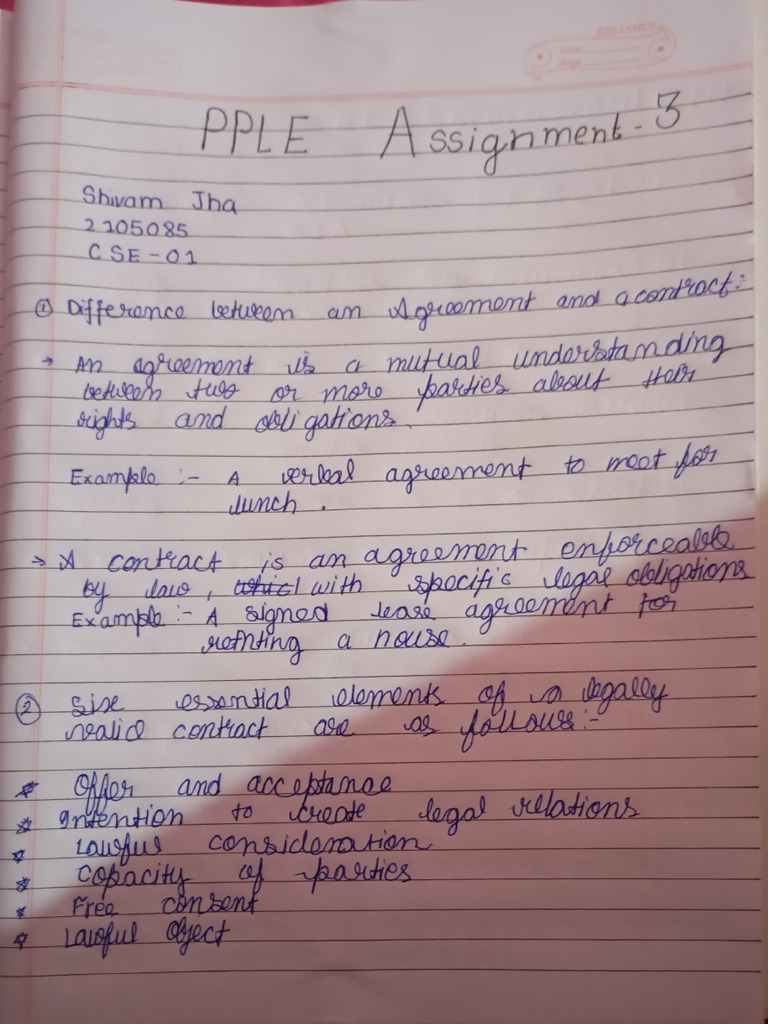 RELIANCE
Date
Page
PPLE Assignment-3
Shivam Jha
2205085
CSE-01
① Difference between an Agreement and a contract:-
→ An agreement is a mutual understanding
between two or more parties about their
rights and obligations.
Example :- A verbal agreement to meet for
lunch.
→ A contract is an agreement enforceable
by law, which with specific legal obligations
Example :- A signed lease agreement for
refnting a house.
② Six essential elements of a legally
valid contract are as follows:-
* Offer and acceptance
* Intention to create legal relations
* Lawful consideration
* Capacity of parties
* Free consent
* Lawful Object